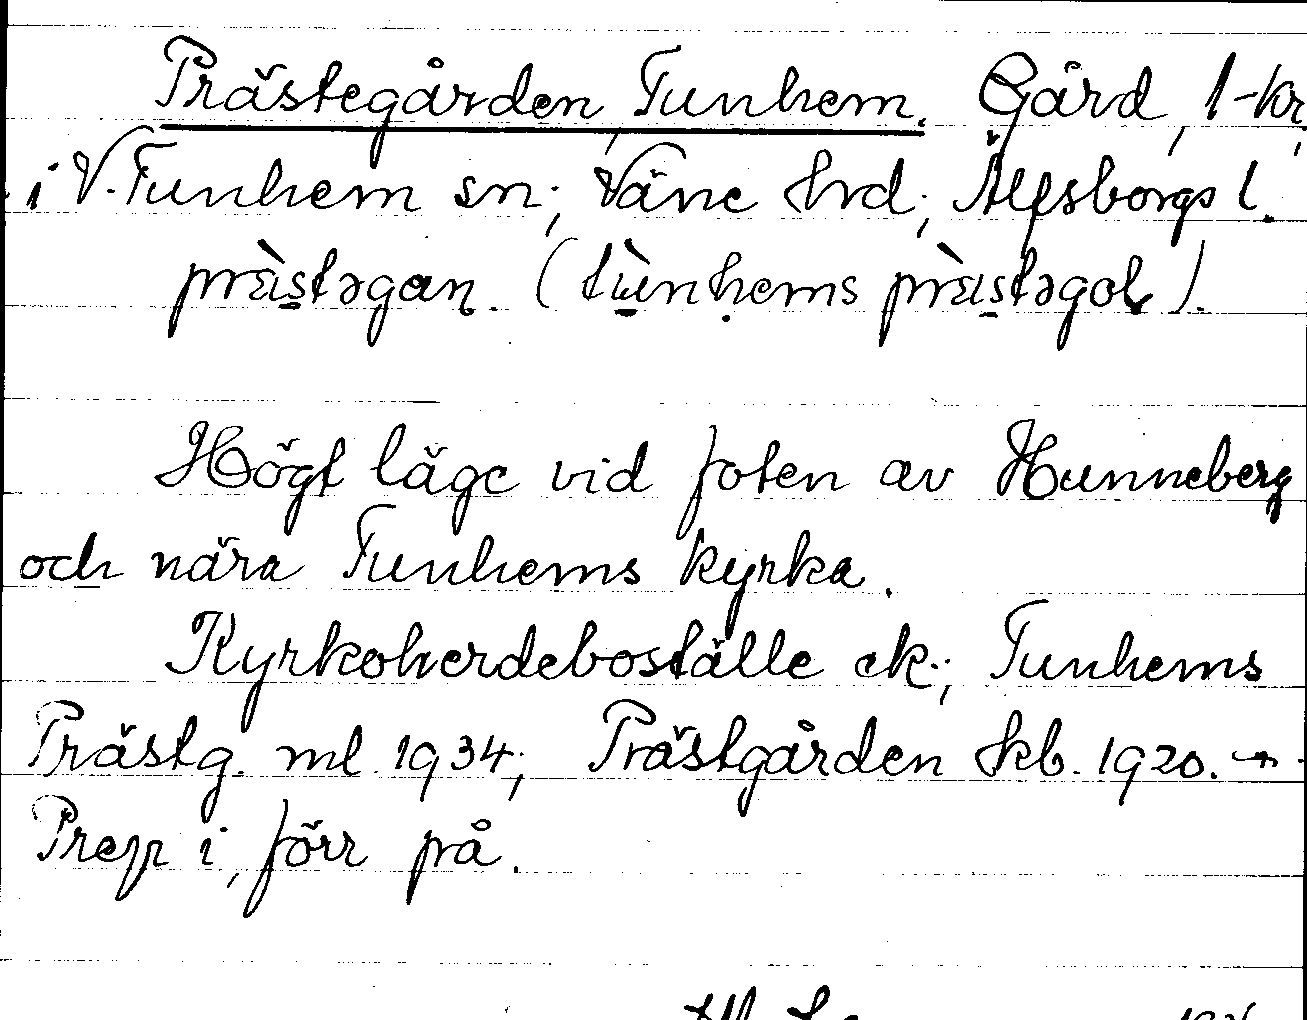 Prästegården, Tunhem. Gård, 1-kr,
i V. Tunhem sn; Väne hrd; Älfsborgs l.
prä̀stəgaɳ. (tùnhems prä̀stəgoɽ).
Högt läge vid foten av Hunneberg
och nära Tunhems kyrka.
Kyrkoherdeboställe ek.; Tunhems
Prästg. ml. 1934; Prästgården hkb. 1920. →
Prep i, förr på.